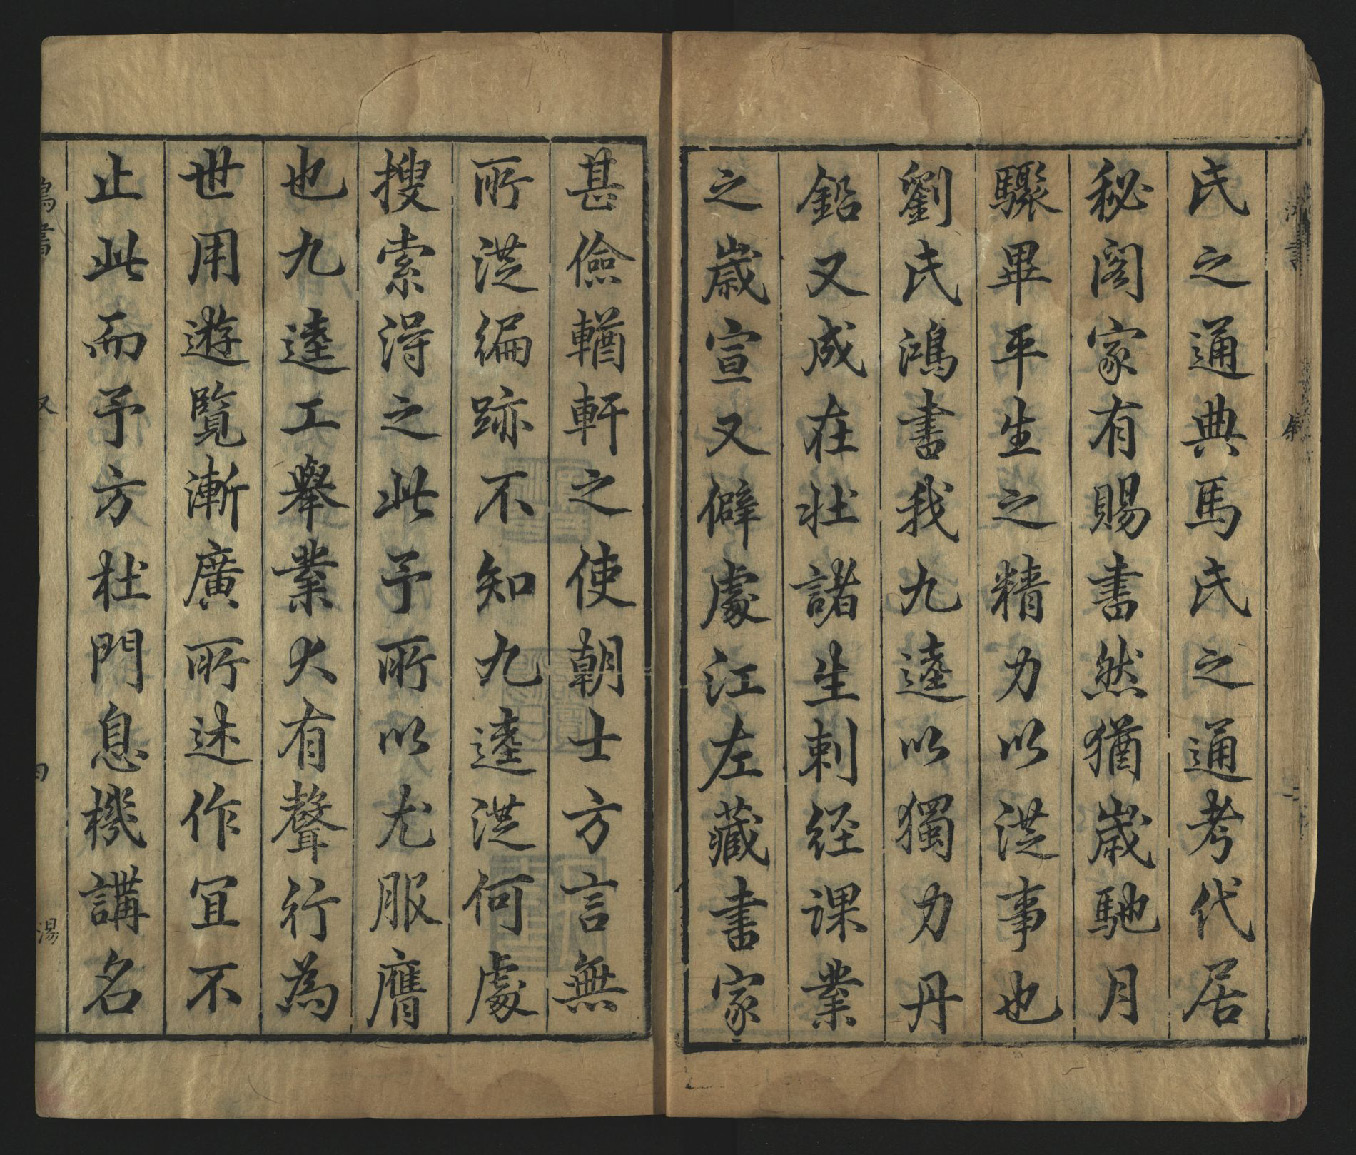 氏之通典馬氏之通考代居
秘閣家有賜書然猶歲馳月
驟畢平生之精力以洪事也
劉氏鴻書我九逵以獨力丹
鉛又成在壯諸生剌經課業
之歲宣又僻處江左藏書家
甚儉輶軒之使朝士方言無
所洪編跡不知九逵洪何處
搜索淂之此予所以尤服膺
也九逵工舉業大有聲行為
世用遊覽漸廣所述作宜不
止此而予方杜門息機講名
鴻書